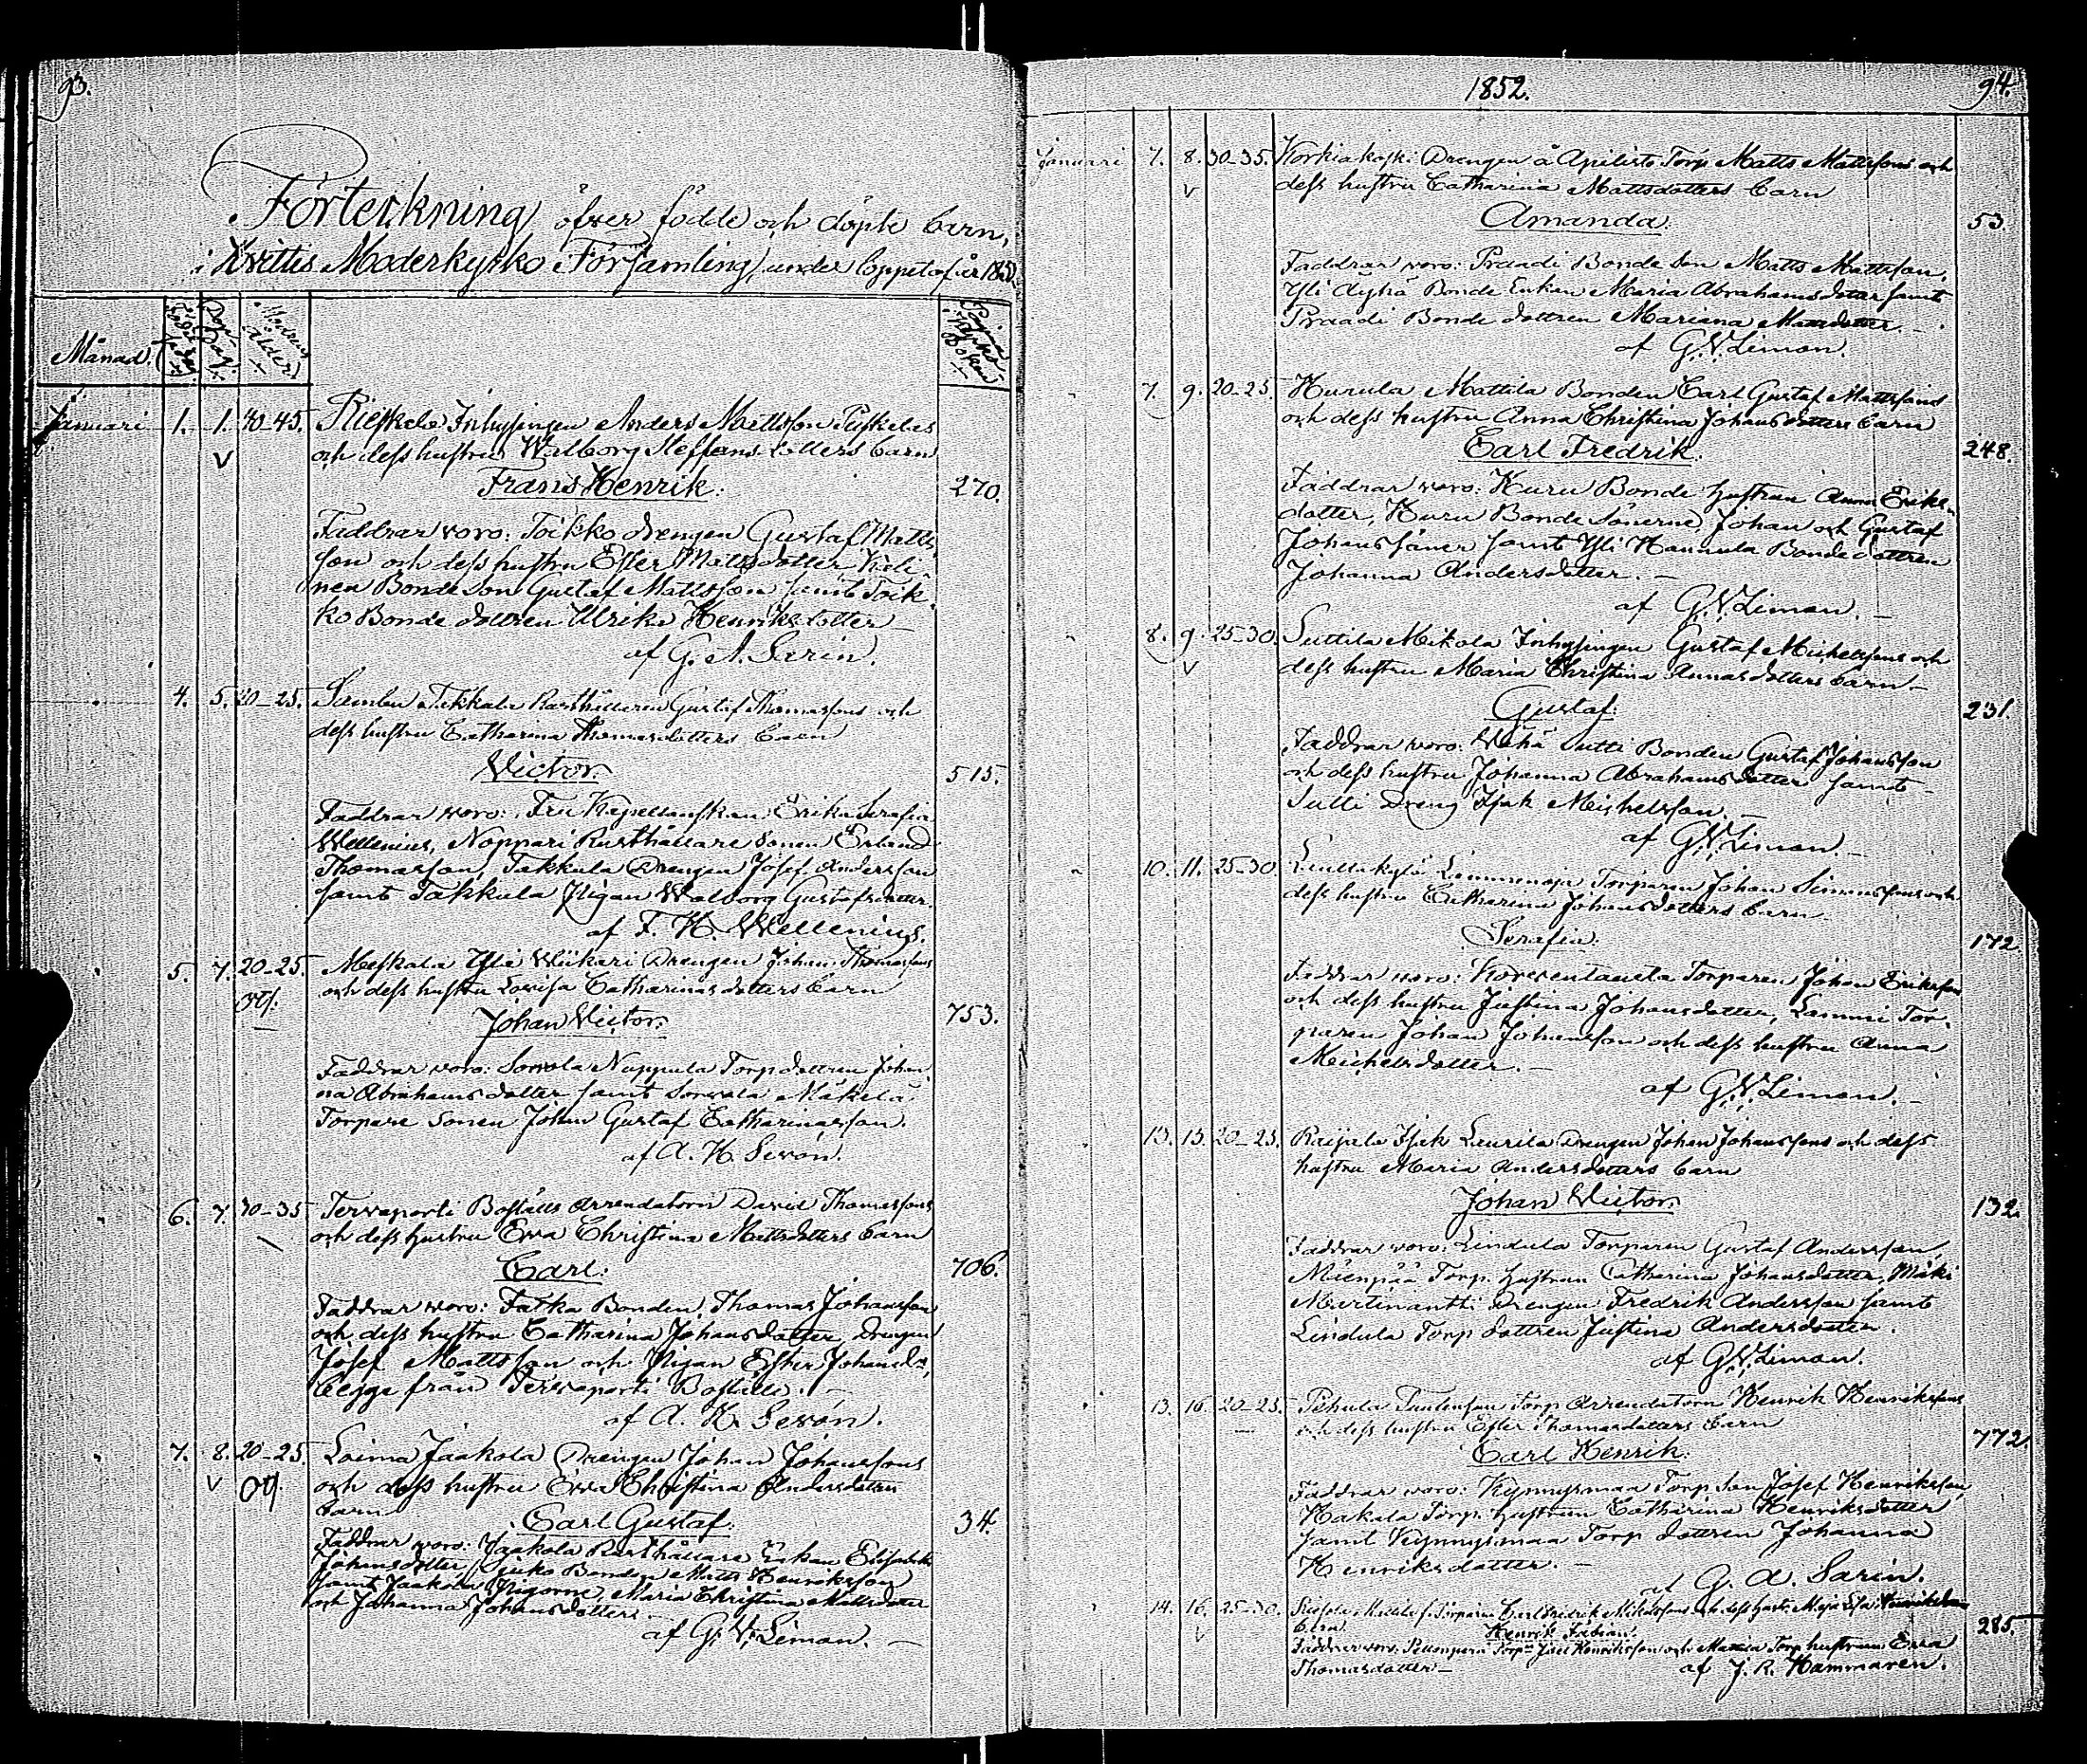 93.
Förteckning öfver födde och döpte barn,
i Hvittis Moderkyrko Församling, under loppet af år 1852
Månad.
Döp. Dag.
Modrens ålder.
Januari 1. 1. 40-45. Inhysingen Anders Mattsson
och dess hustru Walborg Steffans dotters barn
Frans Henrik. 270.
Faddrar voro: Toikko drengen Gustaf Matts
son och dess hustru Ester Mattsdotter,
nen Bonde Son Gustaf Mattsson samt Toik-
ko Bonde dottren Ulrika Henriksdotter
af G. A. Sarin.
4. 5. 20-25. Sambu Takkula Rusthållaren Gustaf Thomassons och
dess hustru Catharina Thomasdotters barn
Victor. 515.
Faddrar voro: Fru Kapellanskan Erika Serafia
Wellenius, Noppari Rusthållare Sonen Erland
Thomasson, Takkula Drengen Josef Andersson
samt Takkula Pigan Walborg Gustafsdotter.
af F. H. Wellenius.
5. 7. 20-25. Meskala Yli Wiikari Drengen Johan Thomassons
och dess hustru Lovisa Catharinas dotters barn
Johan Victor. 753.
Faddrar voro: Sorvola Nuppula Torp dottren Johan-
na Abrahamsdotter samt Sorvala Mäkelä
Torpare Sonen Johan Gustaf Catharinasson.
af A. H. Sevón.
6. 7. 30-35 Tervaporti Boställs Arrendatorn David Thomassons
och dess hustru Eva Christina Mattsdotters barn
Carl. 706.
Faddrar voro: Bonden Thomas Johansson
och dess hustru Catharina Johansdotter, Drengen
Josef Mattsson och Pigan Ester Johansdr,
begge från Tervaporti Boställe.
af A. H. Sevón.
7. 8. 20-25. Loima Jaakola Drengen Johan Johanssons
och dess hustru Eva Christina Andersdotters
barn
Carl Gustaf. 34.
Faddrar voro: Jaakola Rusthållare Enkan Elisabeth
Johansdotter, Bonden Matts Henriksson
samt Jaakola Pigorne, Maria Christina Mattsdotter
och Johanna Johansdotter.
af G. V. Liman.
1852. 94.
Januari 7. 8. 30-35. Korkiakoski Drengen å Apilisto Torp Matts Mattssons och
dess hustru Catharina Mattsdotters barn
Amanda. 53.
Faddrar voro: Praadi Bonde Son Matts Mattsson,
Yli Äyhö Bonde Enkan Maria Abrahamsdotter samt
Praadi Bonde dottren Mariana Mattsdotter.
af G. V. Liman.
7. 9. 20-25. Hurula Mattila Bonden Carl Gustaf Mattssons
och dess hustru Anna Christina Johansdotters barn
Carl Fredrik. 248.
Faddrar voro: Huru Bonde hustrun Anna Eriks-
dotter, Huru Bonde Sönerne Johan och Gustaf
Johanssöner samt Yli Hannula Bonde dottren
Johanna Andersdotter.
af G. V. Liman.
8. 9. 25-30. Suttila Mikola Inhysingen Gustaf Michelssons och
dess hustru Maria Christina Annasdotters barn
Gustaf. 231.
Faddrar voro: Wähä Sutti Bonden Gustaf Johansson
och dess hustru Johanna Abrahamsdotter samt
Sutti Dreng Isak Michelsson.
af G. V. Liman.
10. 11. 25-30. Torparen Johan Simonssons och
dess hustru Catharina Johansdotters barn
Serafia. 172.
Faddrar voro: Korventausta Torparen Johan Eriksson
och dess hustru Justina Johansdotter, Lammi Tor-
paren Johan Johansson och dess hustru Anna
Michelsdotter.
af G. V. Liman.
13. 15. 20-25. Raijala Isak Laurila Drengen Johan Johanssons och dess
hustru Maria Andersdotters barn
Johan Victor. 132.
Faddrar voro: Lindula Torparen Gustaf Andersson,
Mäenpää Torp. hustrun Catharina Johansdotter, Mäki
Martinantti Drengen Fredrik Andersson samt
Lindula Torp dottren Justina Andersdotter.
af G. V. Liman.
13. 16. 20-25. Pehula Torp Arrendatorn Henrik Henrikssons
och dess hustru Ester Thomasdotters barn
Carl Henrik. 772.
Faddrar voro: Kynnysmaa Torp Son Josef Henriksson,
Hakala Torp. hustrun Catharina Henriksdotter
samt Kynnysmaa Torp dottren Johanna
Henriksdotter.
af G. A. Sarin.
14. 16. 25-30. Torparen Carl Fredrik Mikaelssons och dess hustr. Maja Lisa Henriksdrs
barn Henrik Fabian. 285.
Faddrar voro: Torpn Joel Henriksson och Torp hustrun Eva
Thomasdotter
af J. R. Hammaren.